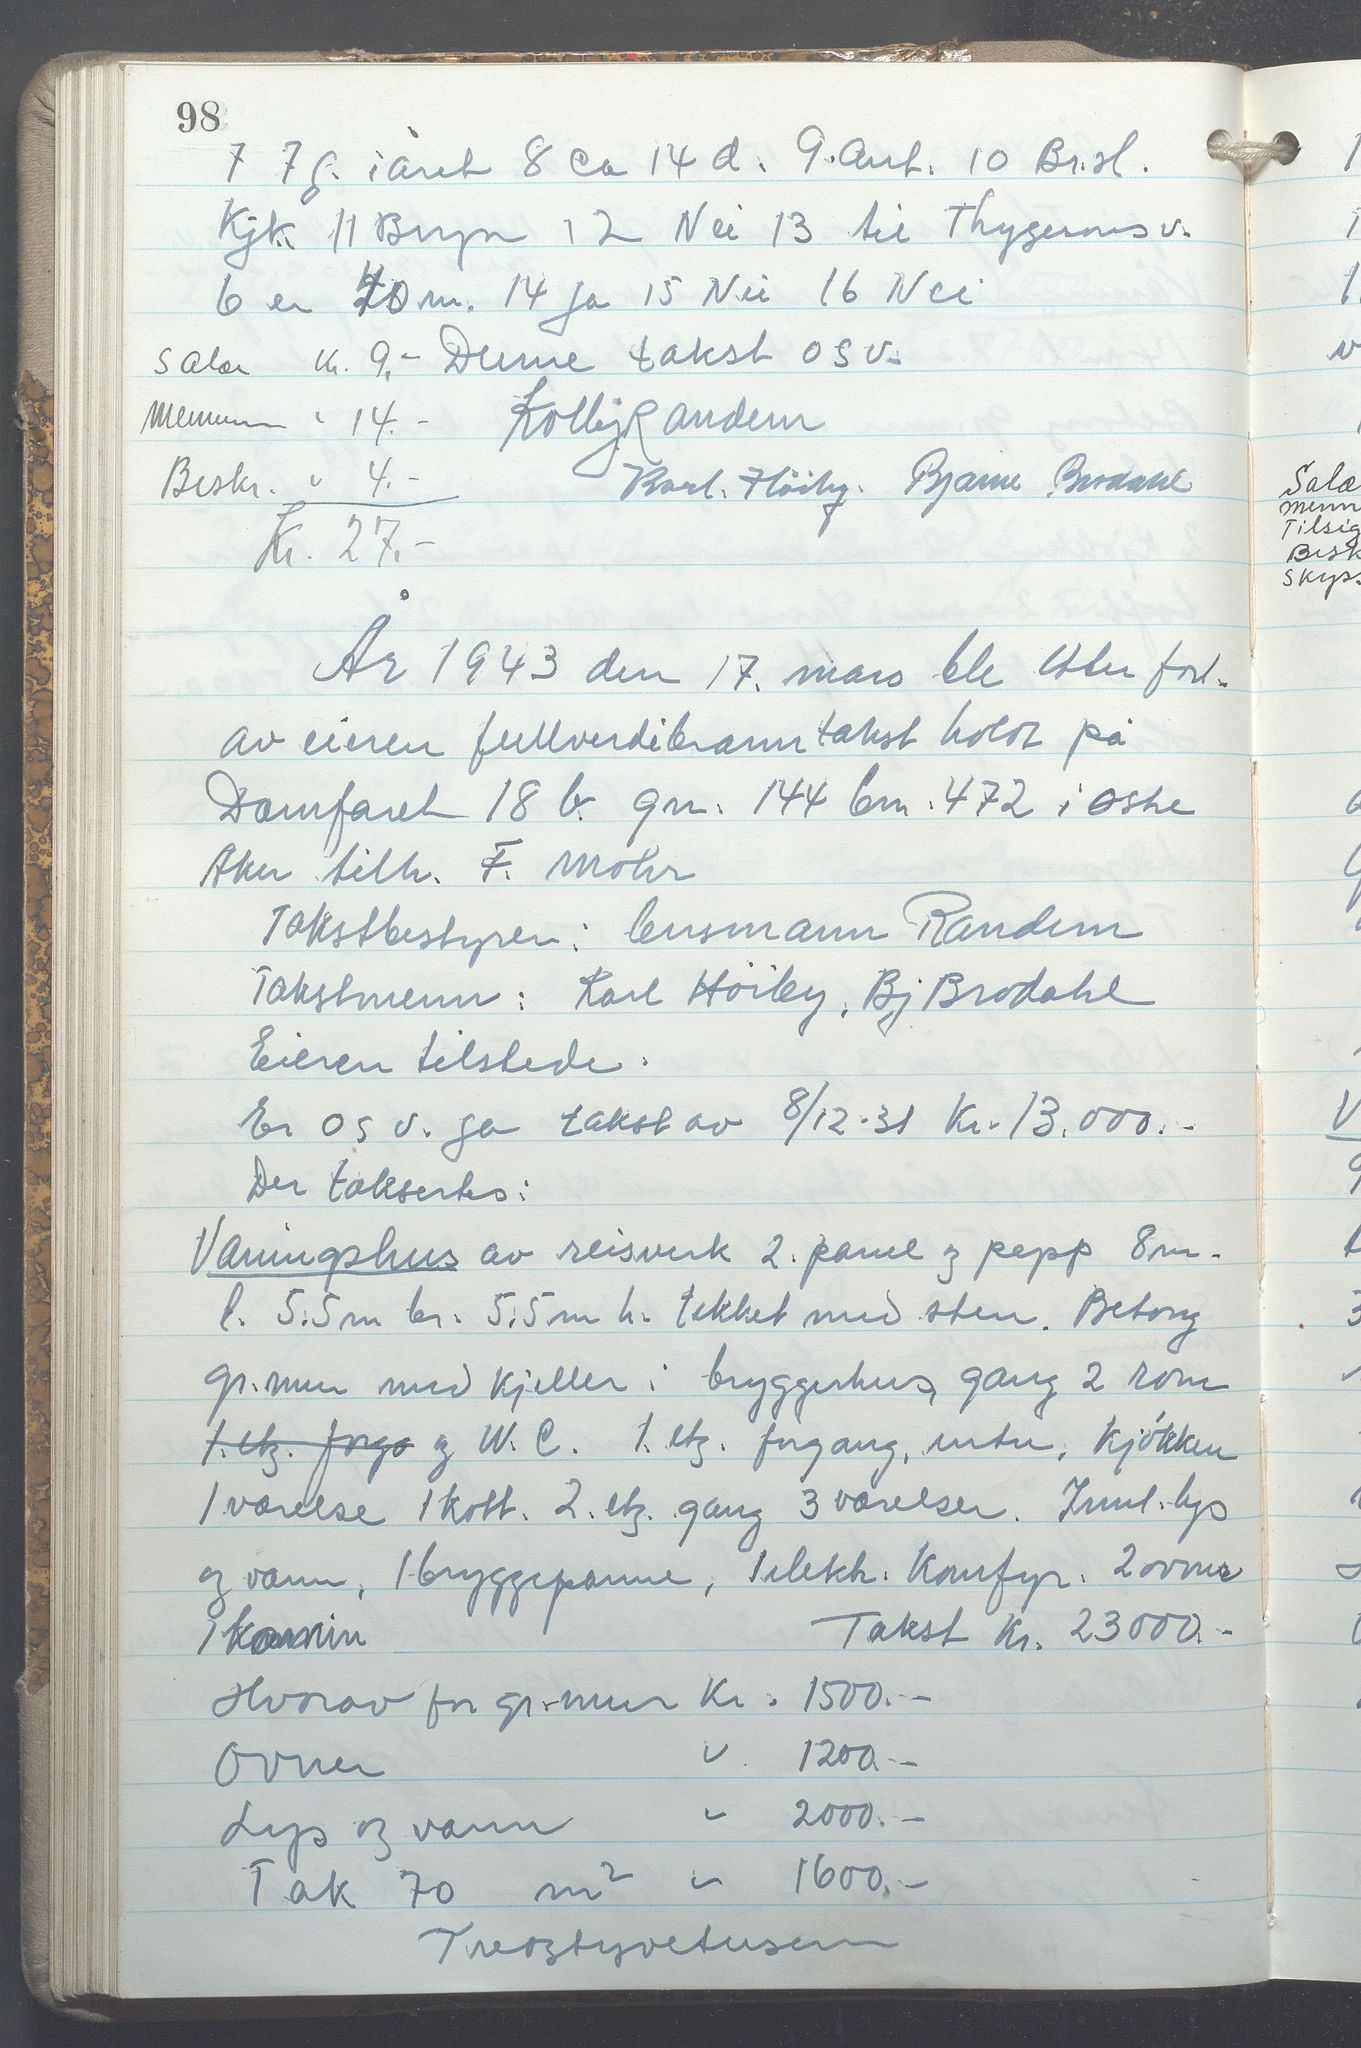 98
7 7 g. i året 8 ca 14 d. 9. Ant. 10 Br.sl.
Kjk. 11 Bryn 12 Nei 13 til Thygesons v.
6 er 40 m. 14 Ja 15 Nei 16 Nei
Salær kr. 9,- Denne takst osv.
Mennene " 14.- Kolbj Randem
Beskr. " 4.- Karl. Höiby. Bjarne Brodahl
Kr. 27.-
År 1943 den 17. mars ble etter forl.
av eieren fullverdibranntakst holdt på
Damfaret 18 b. gn. 144 bn. 472 i Østre
Aker tilh. F. Mohr
Takstbestyrer: lensmann Randem
Takstmenn: Karl Höiby, Bj Brodahl
Eieren tilstede.
Er osv. ja takst av 8/12-31 Kr. 13.000.-
Der taksertes:
Våningshus av reisverk 2. panel og papp 8 m.
l. 5.5 m br. 5.5 m h. tekket med sten. Betong
gr.mur med kjeller i bryggerhus, gang 2 rom
1. etg. forga og W.C. 1. etg. forgang, entre, kjökken
1 værelse 1 kott. 2. etg. gang 3 værelser. Innl. lys
og vann, 1 bryggepanne, 1 elektr. Komfyr. 2 ovner
1 kamin Takst Kr. 23000.-
Hvorav for gr.mur Kr. 1500.-
Ovner " 1200.-
Lys og vann " 2000.-
Tak 70 m² " 1600.-
Treogtyvetusen
Salæ
menn
Tilsig
Besk
Skyss